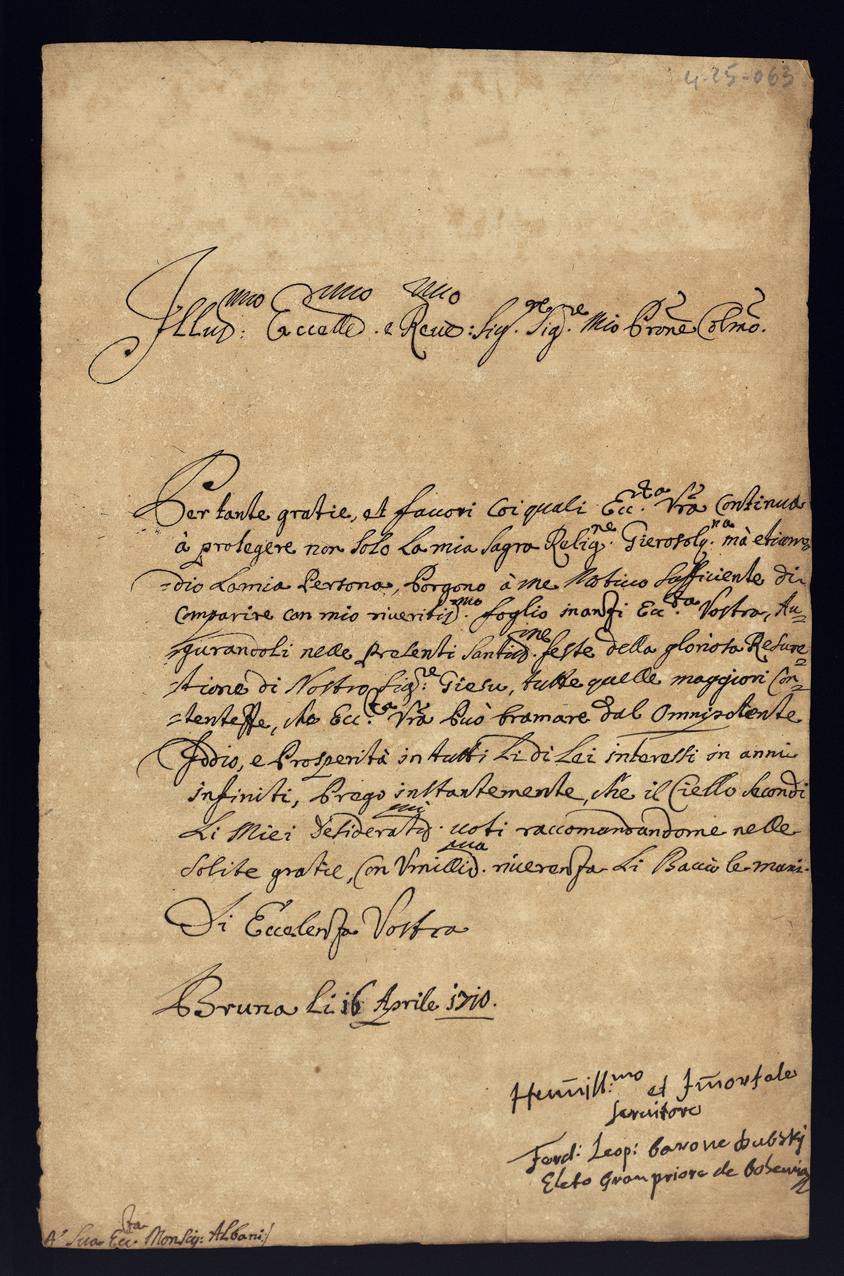 4-25-063
Illus:mo Eccell.mo e Reud:mo Sig.re Sig.re Mio Prone Colmo.
Per tante gratie, et fauori Coi quali Ecc.za Vra Continua
à protegere non solo La mia Sagra Relig.ne Gierosoly.na mà etiam
=dio La mia Persona, Porgono à me Motiuo Sufficiente di
Comparire con mio riueritis.mo foglio inanzi Ecc.za Vostra, Au=
=gurandoli nelle presenti Santis.me feste della gloriosa Resure=
=tione di Nostro Sig.re Giesu, tutte quelle maggiori Con=
=tentesse, che Ecc.za Vra Può bramare dal Omnipotente
Iddio, e Prosperità in tutti Li di Lei interessi in anni
infiniti, Prego instantemente, che il Ciello Secondi
Li Miei desideratis.mi uoti raccomandandome nelle
Solite gratie, Con Vmillis.ma riuerenza Li Bacio le mani.
Di Eccelenza Vostra
Bruna Li 16 Aprile 1710.
Hemill:mo et Imortale
seruitore
Ferd: Leop: barone dubskj
Eleto Gran priore de bohemia
A' Sua Ecc.za Monsig: Albani/